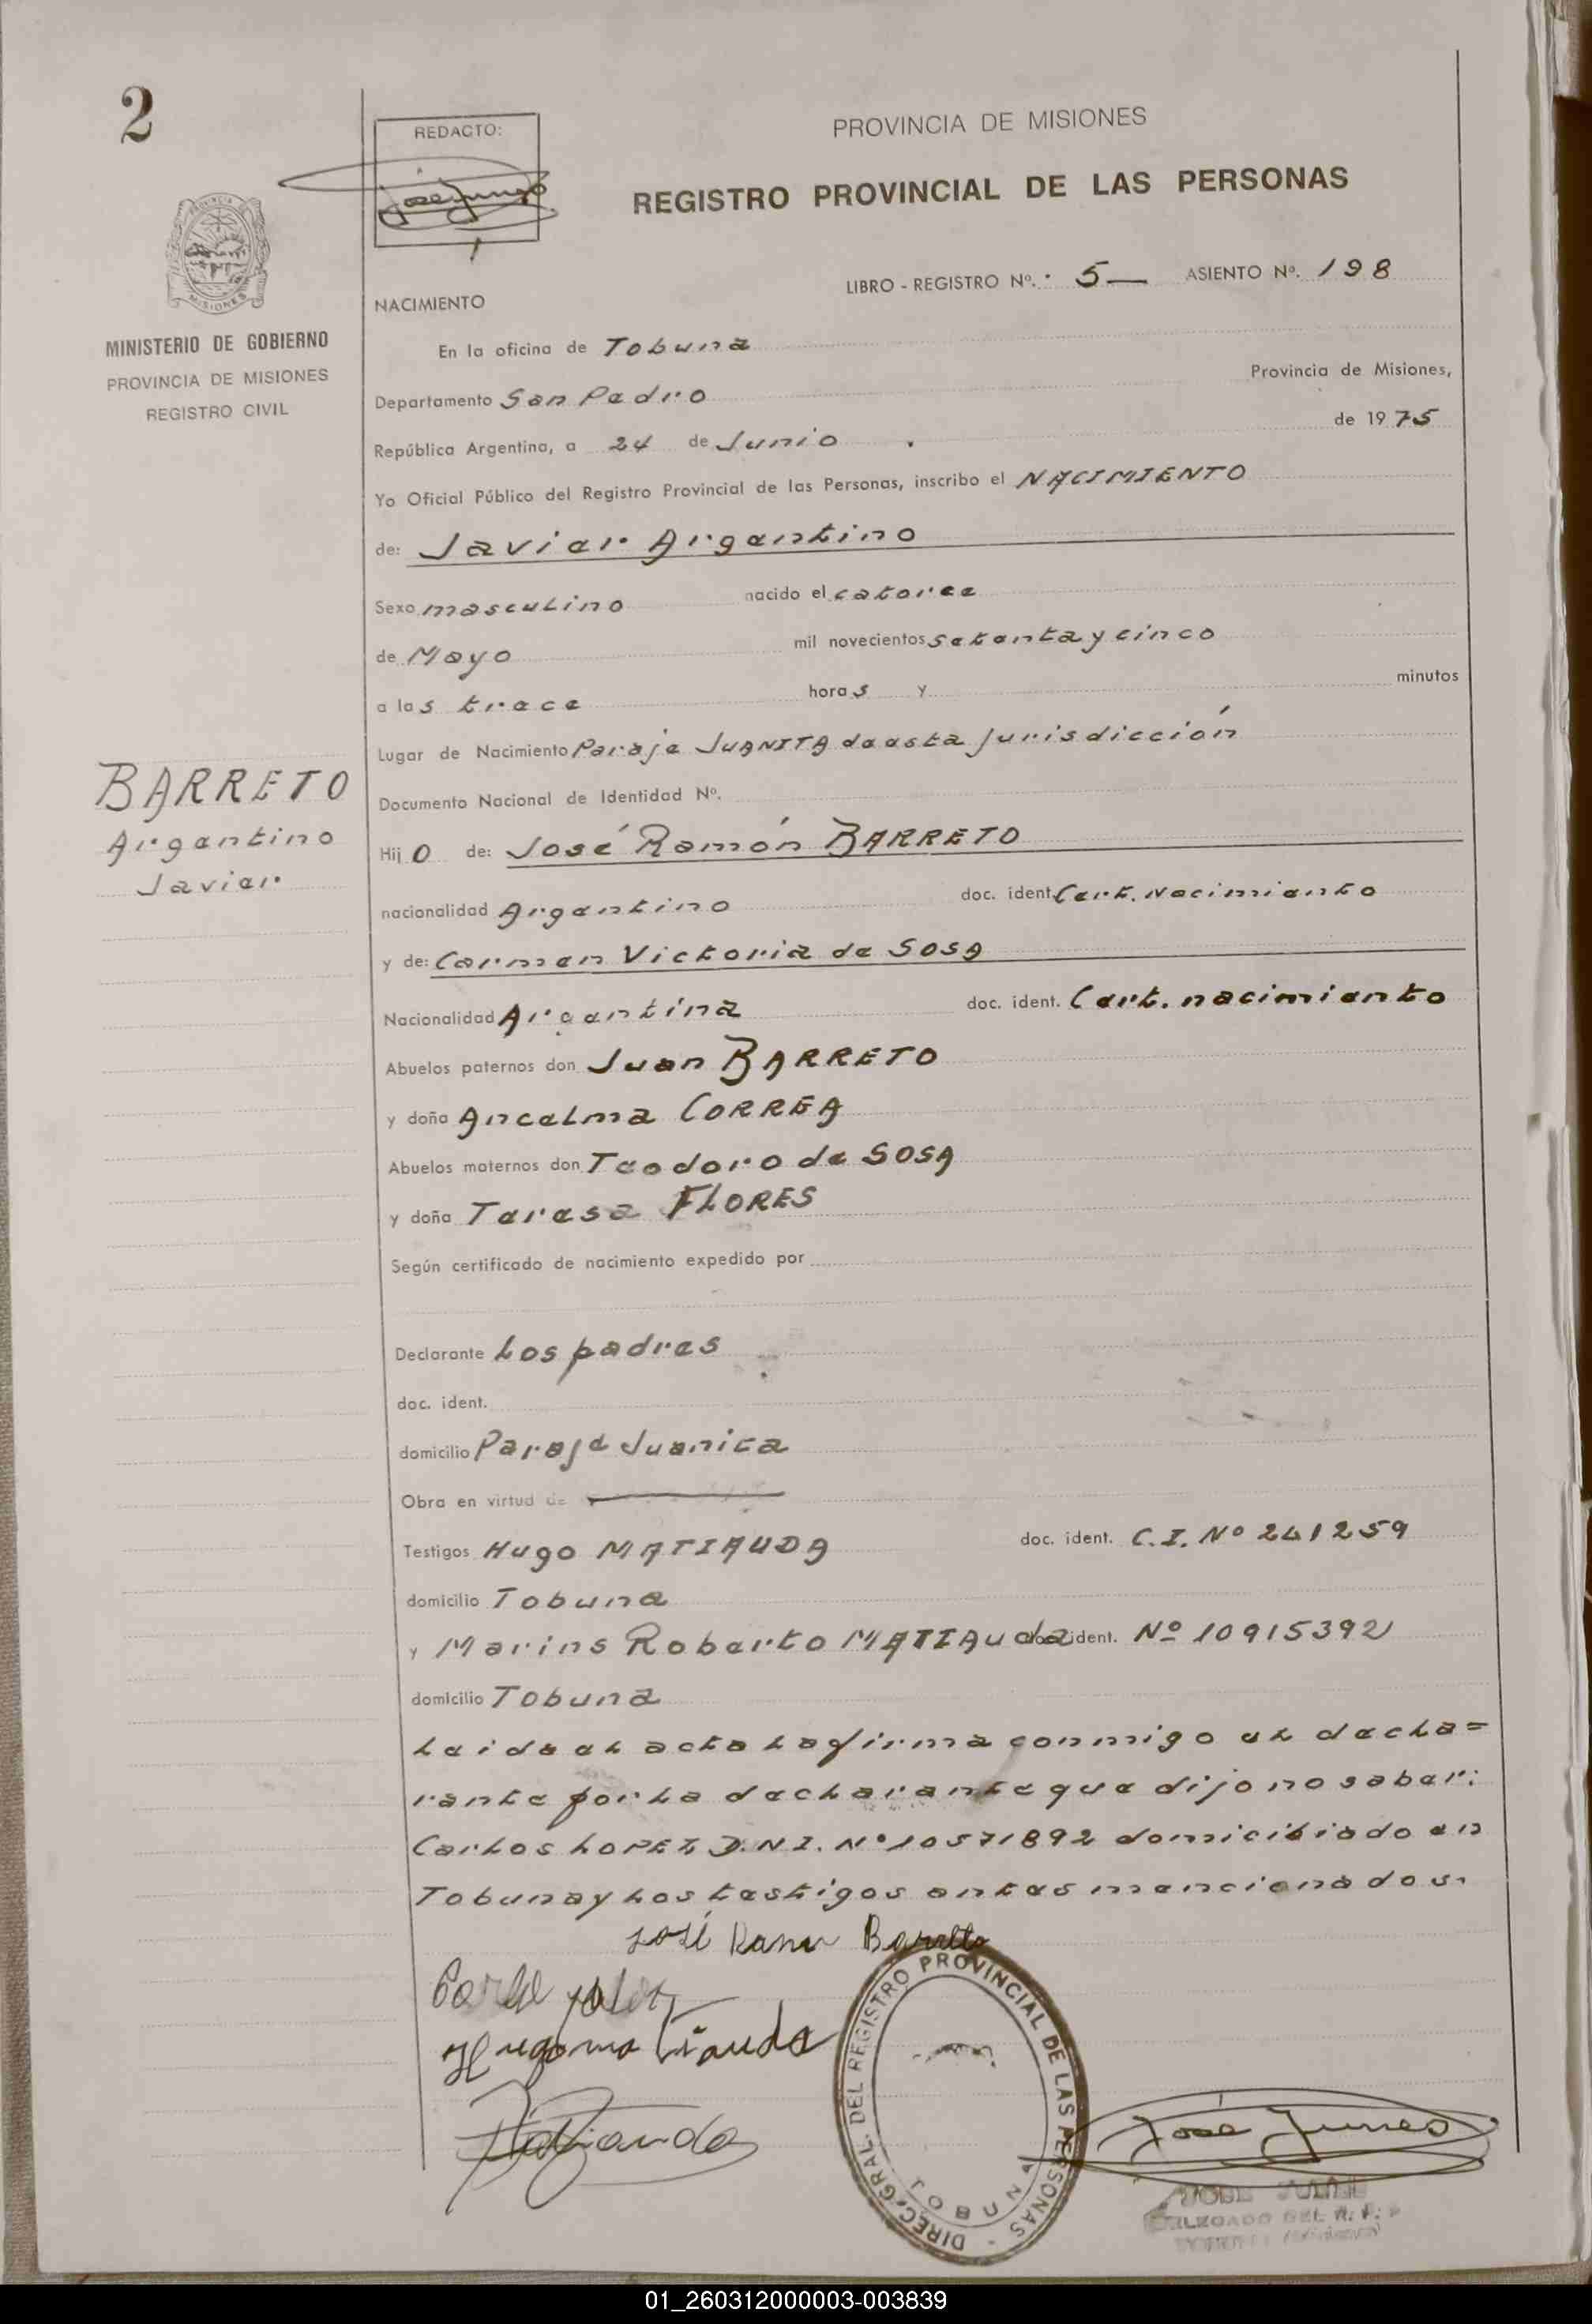 2
REDACTO:
PROVINCIA DE MISIONES
REGISTRO PROVINCIAL DE LAS PERSONAS
PROVINCIA
MISIONES
MINISTERIO DE GOBIERNO
PROVINCIA DE MISIONES
REGISTRO CIVIL
LIBRO - REGISTRO Nº. 5— ASIENTO Nº. 198
NACIMIENTO
En la oficina de Tobuna
Departamento San Pedro Provincia de Misiones,
República Argentina, a 24 de Junio de 1975
Yo Oficial Público del Registro Provincial de las Personas, inscribo el NACIMIENTO
de: Javier Argentino
Sexo masculino nacido el catorce
de Mayo mil novecientos setenta y cinco
a las trece horas y minutos
Lugar de Nacimiento Paraje JUANITA de esta jurisdicción
Documento Nacional de Identidad Nº.
BARRETO
Argentino
Javier
Hijo de: José Ramón BARRETO
nacionalidad Argentino doc. ident. Cert. Nacimiento
y de: Carmen Victoria de SOSA
Nacionalidad Argentina doc. ident. Cert. nacimiento
Abuelos paternos don Juan BARRETO
y doña Ancelma CORREA
Abuelos maternos don Teodoro de SOSA
y doña Teresa FLORES
Según certificado de nacimiento expedido por
Declarante Los padres
doc. ident.
domicilio Paraje Juanita
Obra en virtud de
Testigos Hugo MATIAUDA doc. ident. C.I. Nº 241259
domicilio Tobuna
y Marins Roberto MATIAuda doc. ident. Nº 10915392
domicilio Tobuna
Leida el acta la firma conmigo el decla=
rante por la declarante que dijo no saber:
Carlos LOPEZ D.N.I. Nº 10571892 domiciliado en
Tobuna y los testigos antes mencionados.
José Ramon Barreto
Hugo matiauda
Matiauda
DIREC. GRAL. DEL REGISTRO PROVINCIAL DE LAS PERSONAS -
TOBUNA
José
DELEGADO DEL R. P. P
01_260312000003-003839